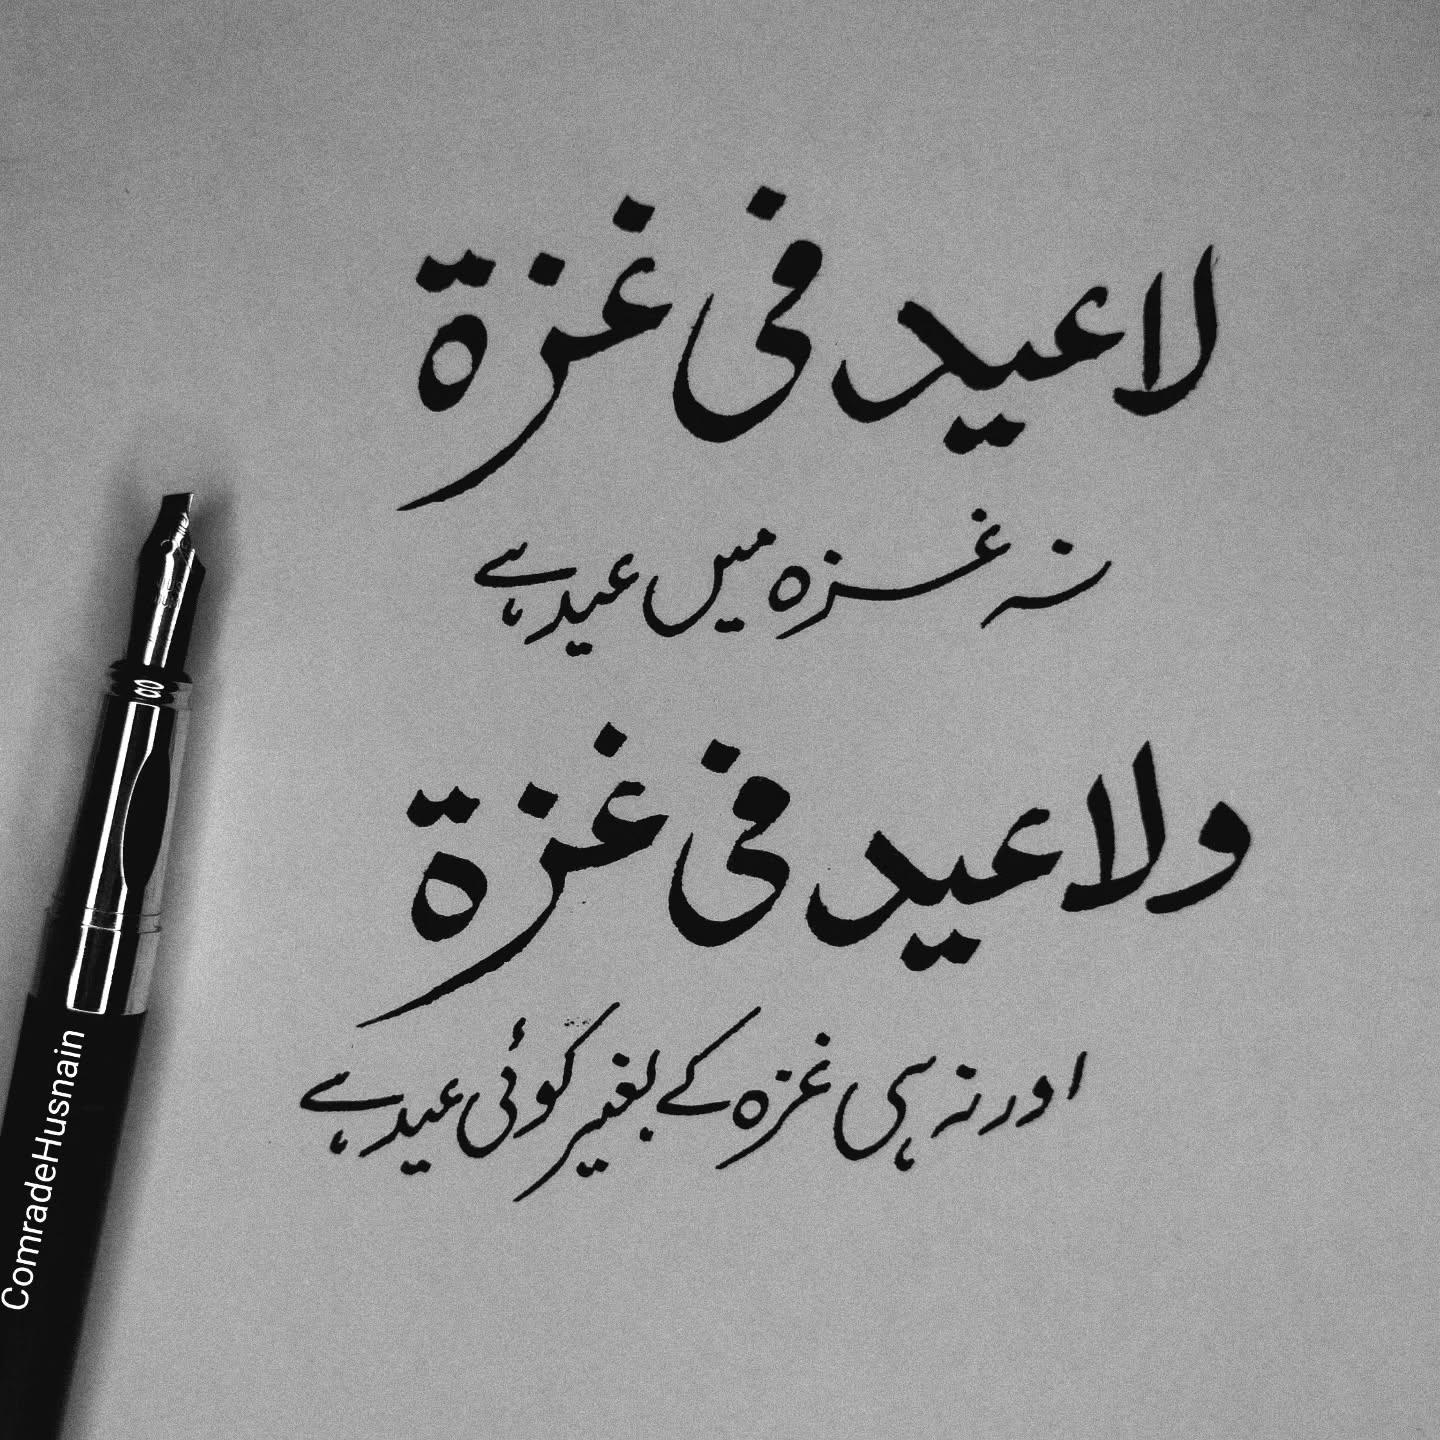 لا عيد فى غزة
نہ غزہ میں عید ہے
ولا عيد فى غزة
اور نہ ہی غزہ کے بغیر کوئی عید ہے
ComradeHusnain